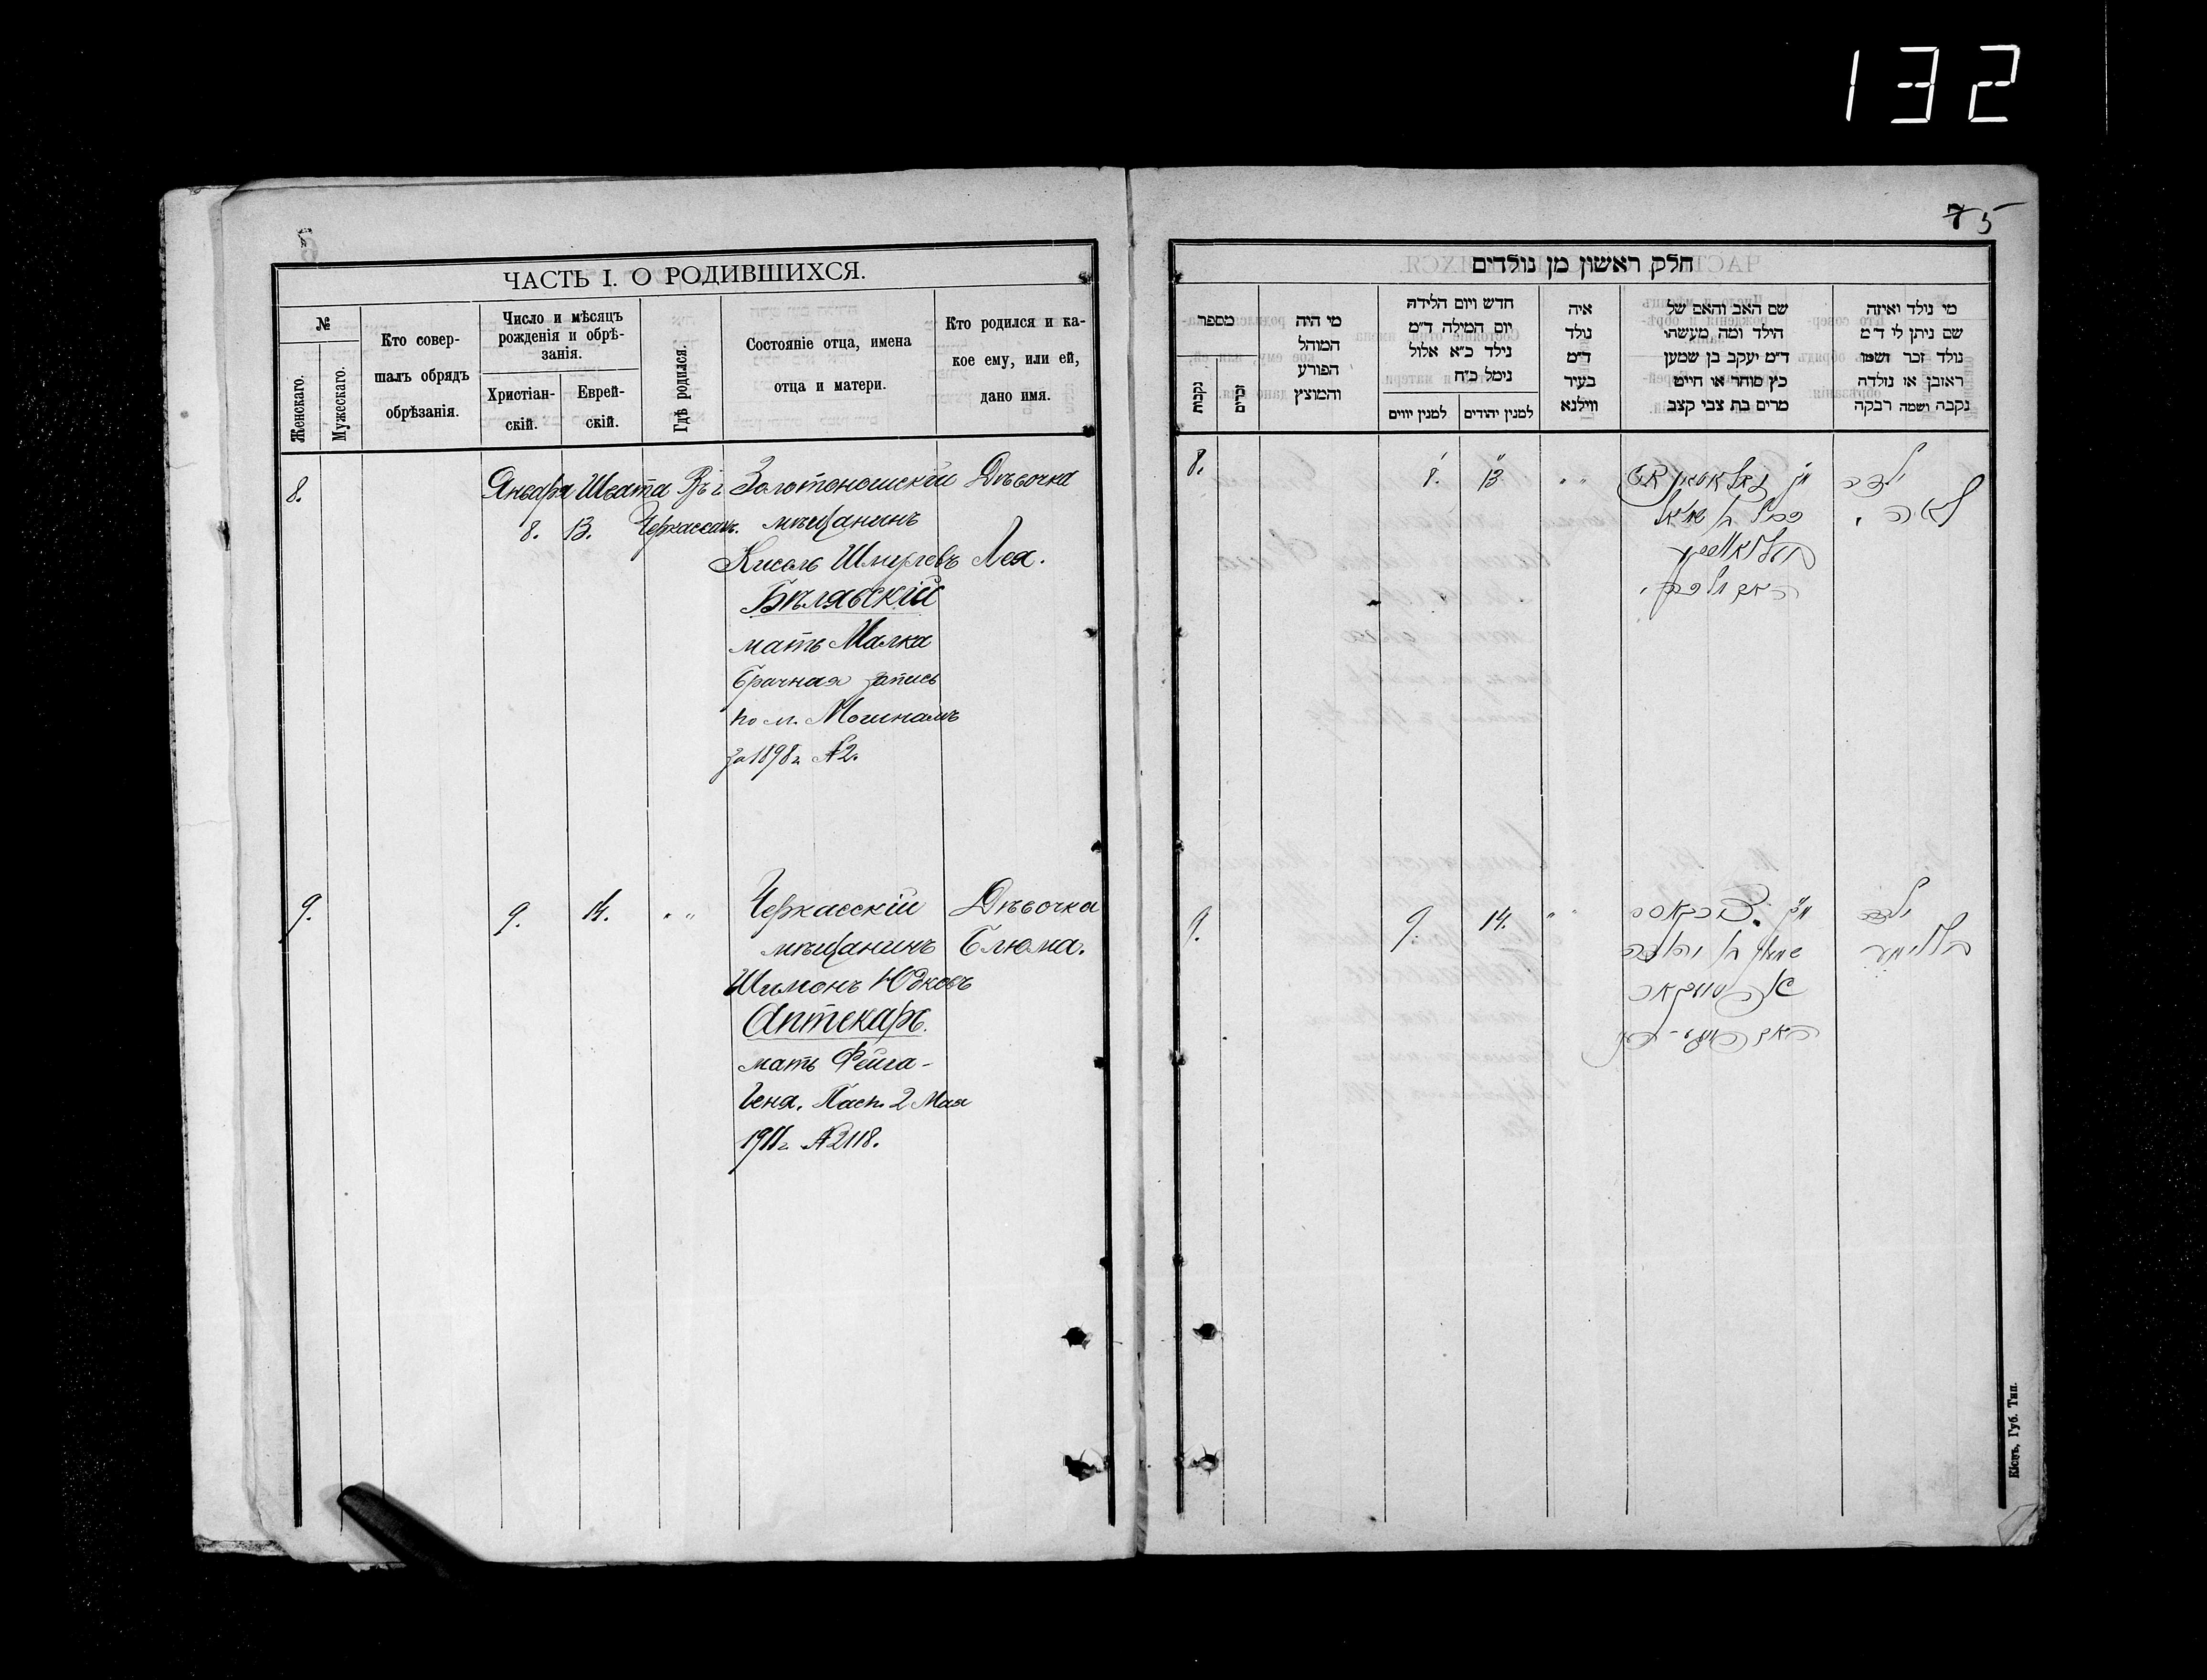 132
ЧАСТЬ I. О РОДИВШИХСЯ.
№
Женскаго.
Мужескаго.
Кто совер-
шалъ обрядъ
обрѣзанія.
Число и мѣсяцъ
рожденія и обрѣ-
занія.
Христіан-
скій.
Еврей-
скій.
Гдѣ родился.
Состояніе отца, имена
отца и матери.
Кто родился и ка-
кое ему, или ей,
дано имя.
8. Января Швата Въ г. Золотоношскій Дѣвочка
8. 13. Черкассахъ. мѣщанинъ
Кисель Шмулевъ Лея.
Бѣлявскій
мать Малка
брачная запись
по м.
за 1898 г. №2.
9. 9. 14. " " Черкасскій Дѣвочка
мѣщанинъ Блюма.
Шимонъ Юдковъ
Аптекарь.
мать Фейга-
Геня. Пасп. 2 Мая
1911 г. №2118.
75
חלק ראשון מן נולדים
מספר
נקבות
זכרים
מי היה
המוהל
הפורע
והמוצץ
חדש ויום הלידה
יום המילה ד״מ
נילד כ״א אלול
נימל כ״ח
למנין יווים
למנין יהודים
איה
נולד
ד״מ
בעיר
ווילנא
שם האב והאם של
הילד ומה מעשהו
ד״מ יעקב בן שמען
כץ סוחר או חייט
מרים בת צבי קצב
מי נולד ואיזה
שם ניתן לו ד״מ
נולד זכר ושמו
ראובן או נולדה
נקבה ושמה רבקה
8. 8. 13 " " ילדה
לאה
9. 9. 14. " " ילדה
שמעון בן
Кіевъ, Губ. Тип.